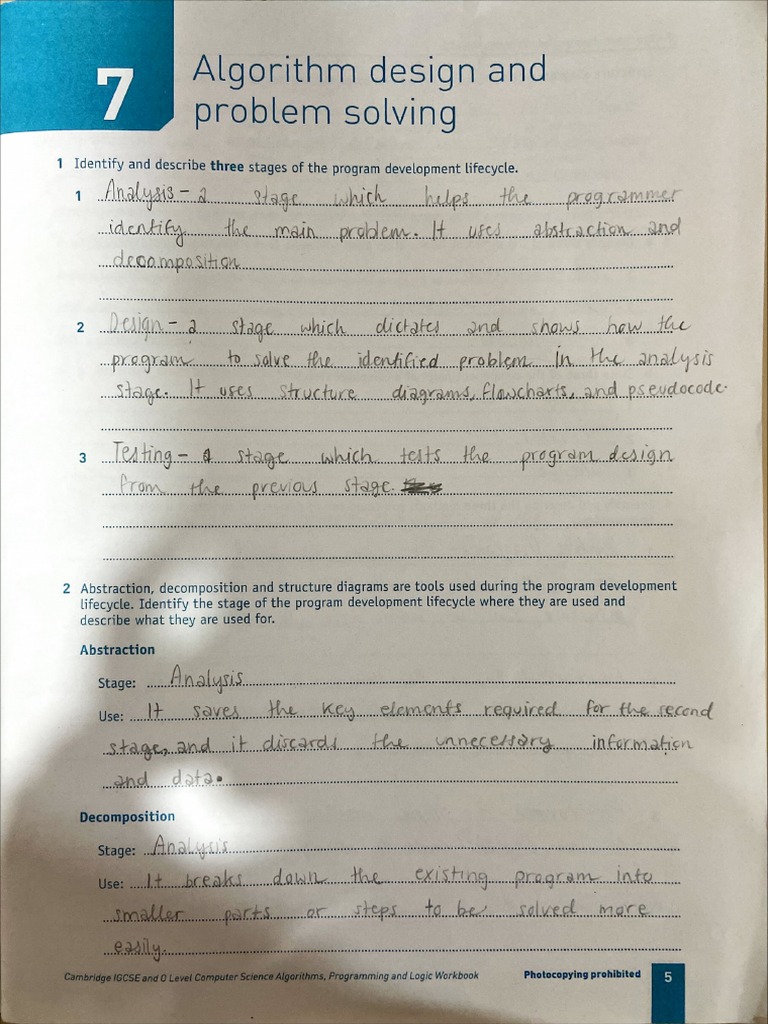 7
Algorithm design and
problem solving
1 Identify and describe three stages of the program development lifecycle.
1 Analysis - a stage which helps the programmer
identify the main problem. It uses abstraction and
decomposition
2 Design - a stage which dictates and shows how the
program to solve the identified problem in the analysis
stage. It uses structure diagrams, flowcharts, and pseudocode.
3 Testing - a stage which tests the program design
from the previous stage.
2 Abstraction, decomposition and structure diagrams are tools used during the program development
lifecycle. Identify the stage of the program development lifecycle where they are used and
describe what they are used for.
Abstraction
Stage: Analysis
Use: It saves the key elements required for the second
stage, and it discards the unnecessary information
and data.
Decomposition
Stage: Analysis
Use: It breaks down the existing program into
smaller parts or steps to be solved more
easily.
Cambridge IGCSE and O Level Computer Science Algorithms, Programming and Logic Workbook Photocopying prohibited 5